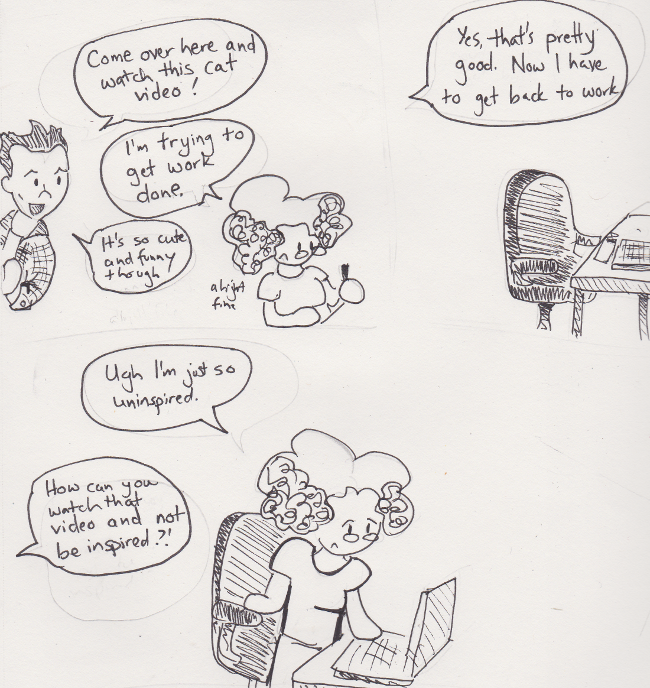 Come over here and
watch this cat
video!
I'm trying to
get work
done.
It's so cute
and funny
though
alright
fine
Yes, that's pretty
good. Now I have
to get back to work
Ugh I'm just so
uninspired.
How can you
watch that
video and not
be inspired?!